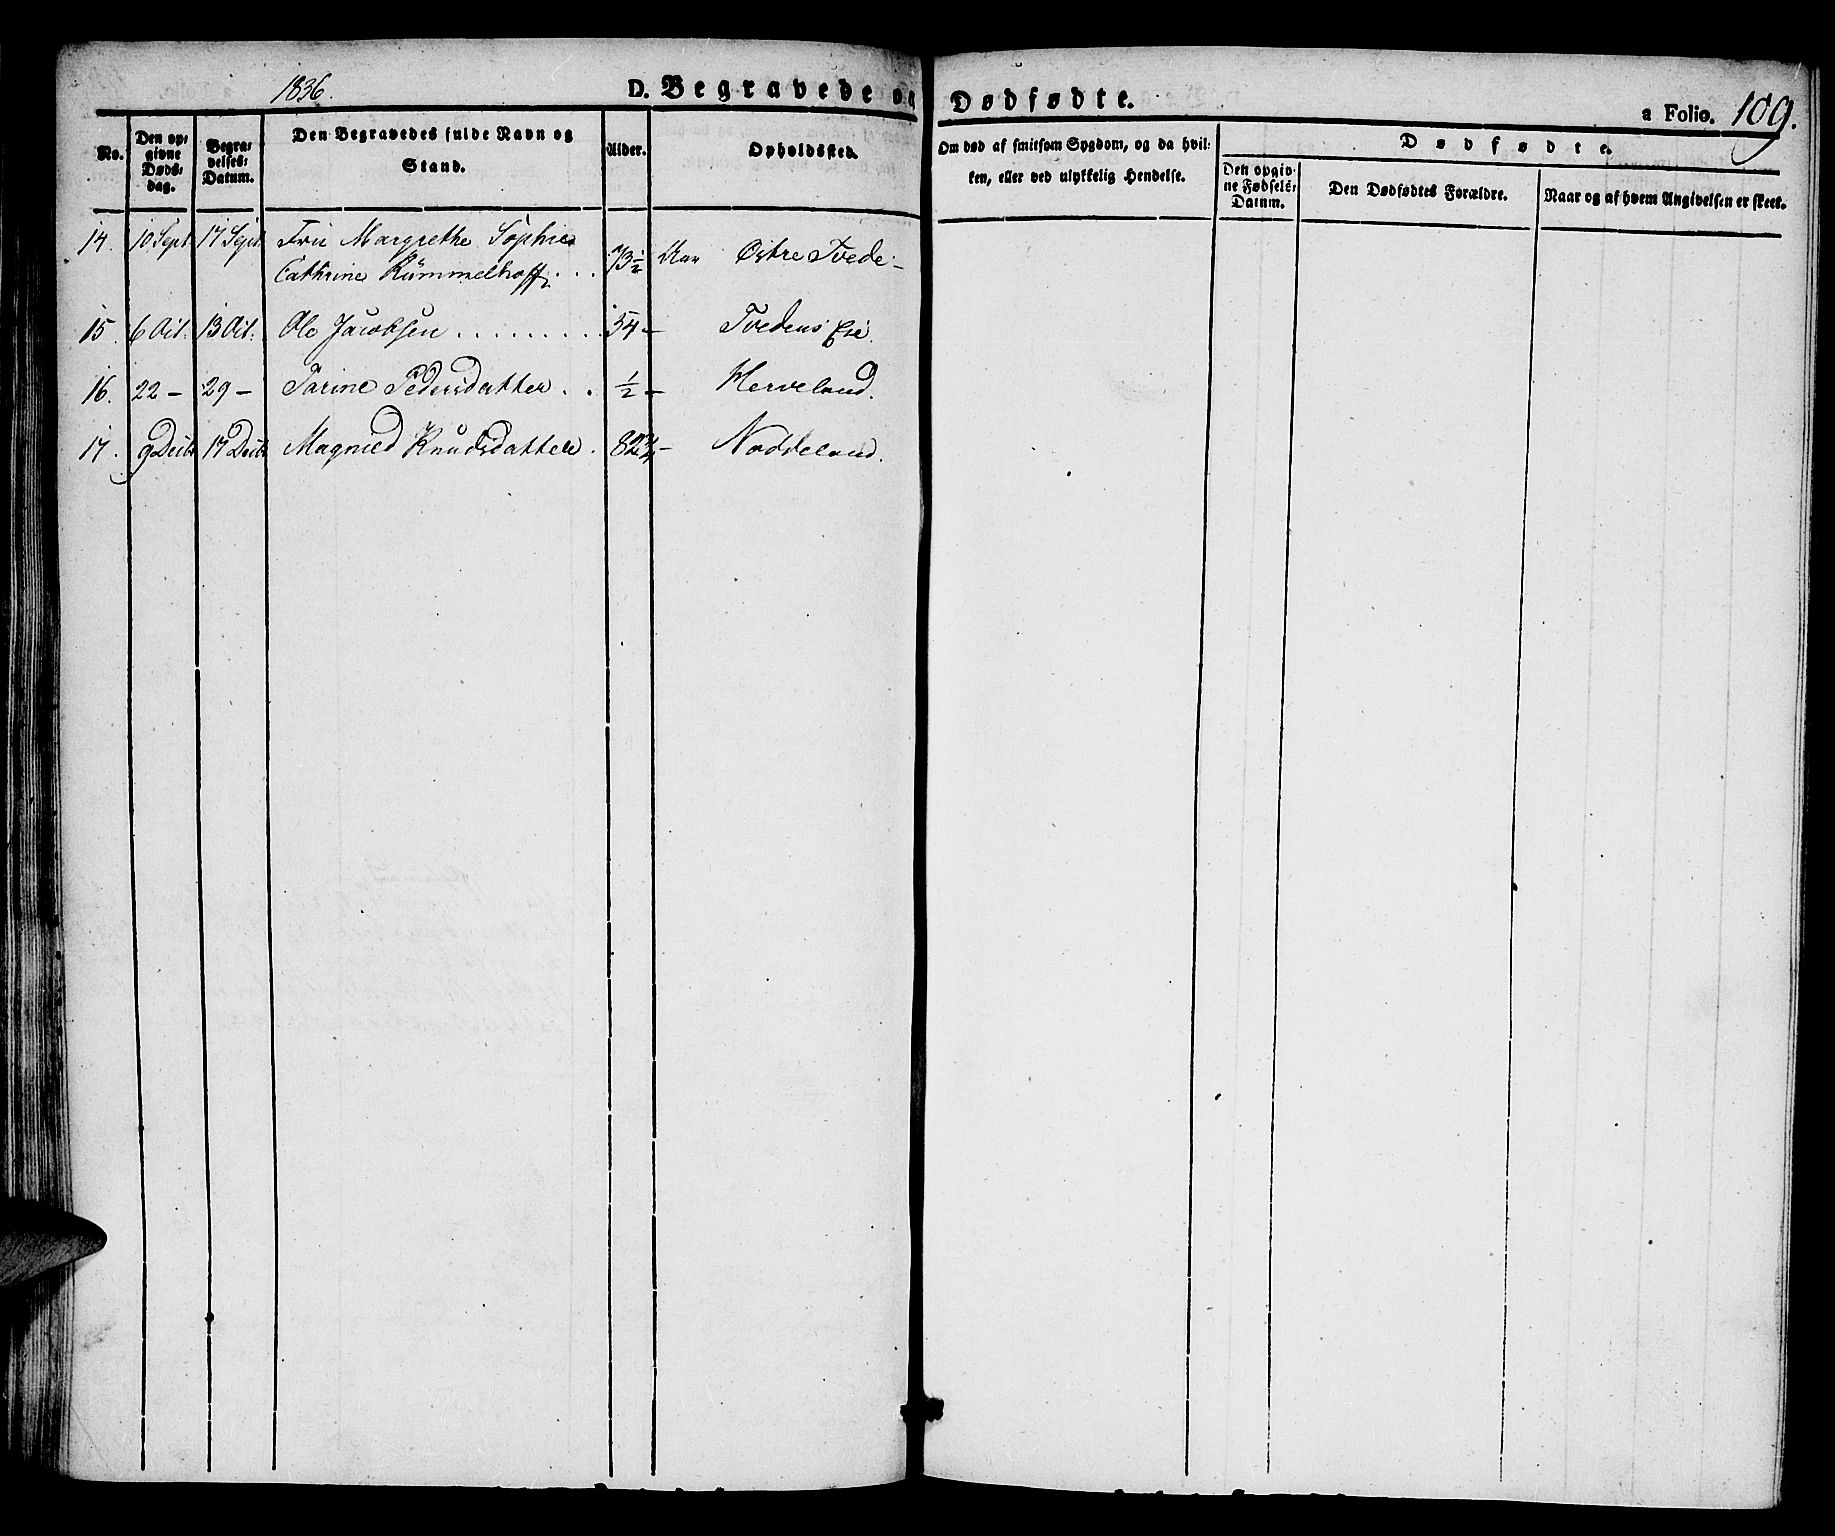 1836.
D. Begravede og Dødfødte.
a Folio. 109.
No.
Den op-
givne
Døds-
dag.
Begra-
velses-
Datum.
Den Begravedes fulde Navn og
Stand.
Alder.
Opholdssted.
Om død af smitsom Sygdom, og da hvil-
ken, eller ved ulykkelig Hendelse.
Dødfødte.
Den opgiv-
ne Fødsels-
Datum.
Den Dødfødtes Forældre.
Naar og af hvem Angivelsen er skeet.
14. 10 Sept 17 Sept. Fru Margrethe Sophie
Cathrine Rümmelhoff . . . 73½ Aar Østre Tvede -
15. 6 Oct. 13 Oct. Ole Jacobsen . . . . . . . . . 54 - Tvedens Eie.
16. 22 - 29 - Tarine Pedersdatter . . ½ - Herveland.
17. 9 Decbr 17 Decbr Magnild Knudsdatter . 82¾ - Noddeland.